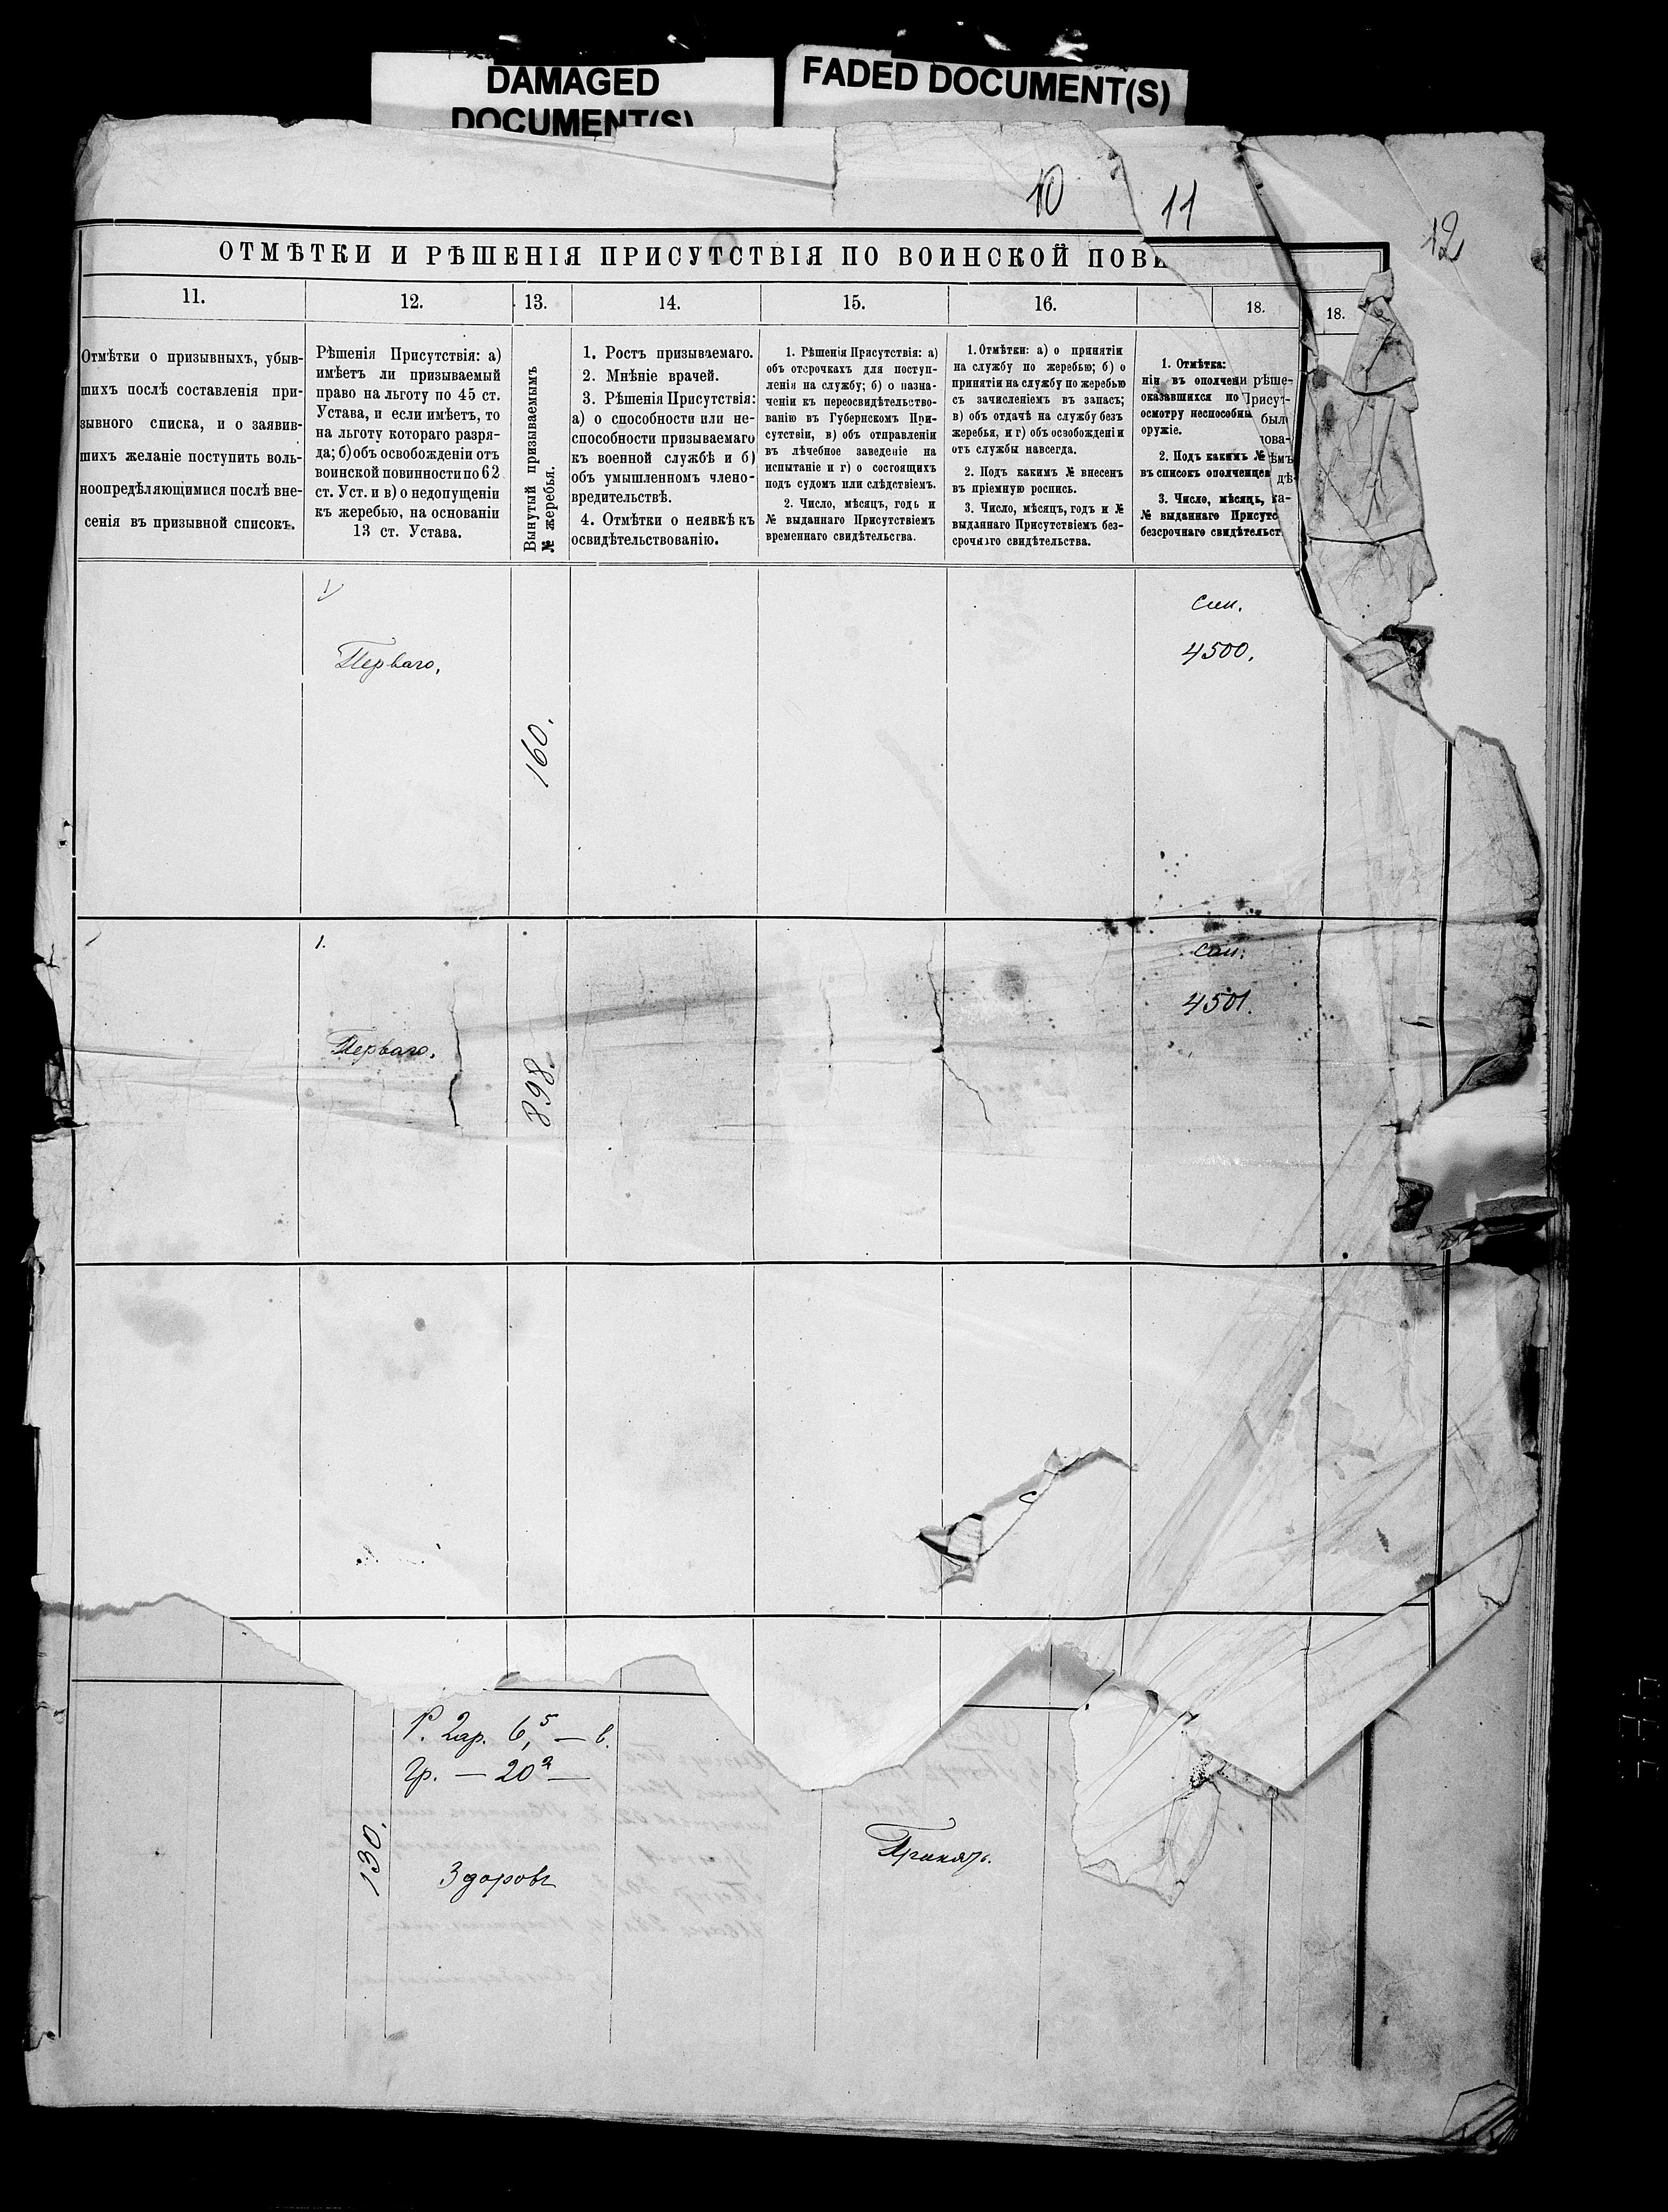 DAMAGED
DOCUMENT(S)
FADED DOCUMENT(S)
10
11
12
ОТМѢТКИ И РѢШЕНІЯ ПРИСУТСТВІЯ ПО ВОИНСКОЙ ПОВИ
11.
12.
13.
14.
15.
16.
18.
18.
Отмѣтки о призывныхъ, убыв-
шихъ послѣ составленія при-
зывного списка, и о заявив-
шихъ желаніе поступить воль-
ноопредѣляющимися послѣ вне-
сенія въ призывной списокъ.
Рѣшенія Присутствія: а)
имѣетъ ли призываемый
право на льготу по 45 ст.
Устава, и если имѣетъ, то
на льготу котораго разря-
да; б) объ освобожденіи отъ
воинской повинности по 62
ст. Уст. и в) о недопущеніи
къ жеребью, на основаніи
13 ст. Устава.
Вынутый призываемымъ
№ жеребья.
1. Ростъ призываемаго.
2. Мнѣніе врачей.
3. Рѣшенія Присутствія:
а) о способности или не-
способности призываемаго
къ военной службѣ и б)
объ умышленномъ члено-
вредительствѣ.
4. Отмѣтки о неявкѣ къ
освидѣтельствованію.
1. Рѣшенія Присутствія: а)
объ отсрочкахъ для поступ-
ленія на службу; б) о назна-
ченіи къ переосвидѣтельство-
ванію въ Губернскомъ При-
сутствіи, в) объ отправленіи
въ лѣчебное заведеніе на
испытаніе и г) о состоящихъ
подъ судомъ или слѣдствіемъ.
2. Число, мѣсяцъ, годъ и
№ выданнаго Присутствіемъ
временнаго свидѣтельства.
1. Отмѣтки: а) о принятіи
на службу по жеребью; б) о
принятіи на службу по жеребью
съ зачисленіемъ въ запасъ;
в) объ отдачѣ на службу безъ
жеребья, и г) объ освобожденіи
отъ службы навсегда.
2. Подъ какимъ № внесенъ
въ пріемную роспись.
3. Число, мѣсяцъ, годъ и №
выданнаго Присутствіемъ без-
срочнаго свидѣтельства.
1. Отмѣтка:
ніи въ ополчени рѣше-
оказавшихся по Присут-
осмотру неспособны было
оружіе. лова-
2. Подъ какимъ № ѣмъ
въ списокъ ополченцев дѣ-
3. Число, мѣсяцъ, ка-
№ выданнаго Присутс
безсрочнаго свидѣтельст
1
Перваго,
160.
Сип.
4500.
1.
Перваго.
898.
Сип.
4501.
Р. 2ар. 6,5 — в.
Гр. — 20 2 —
130.
Здоровъ
Принятъ.